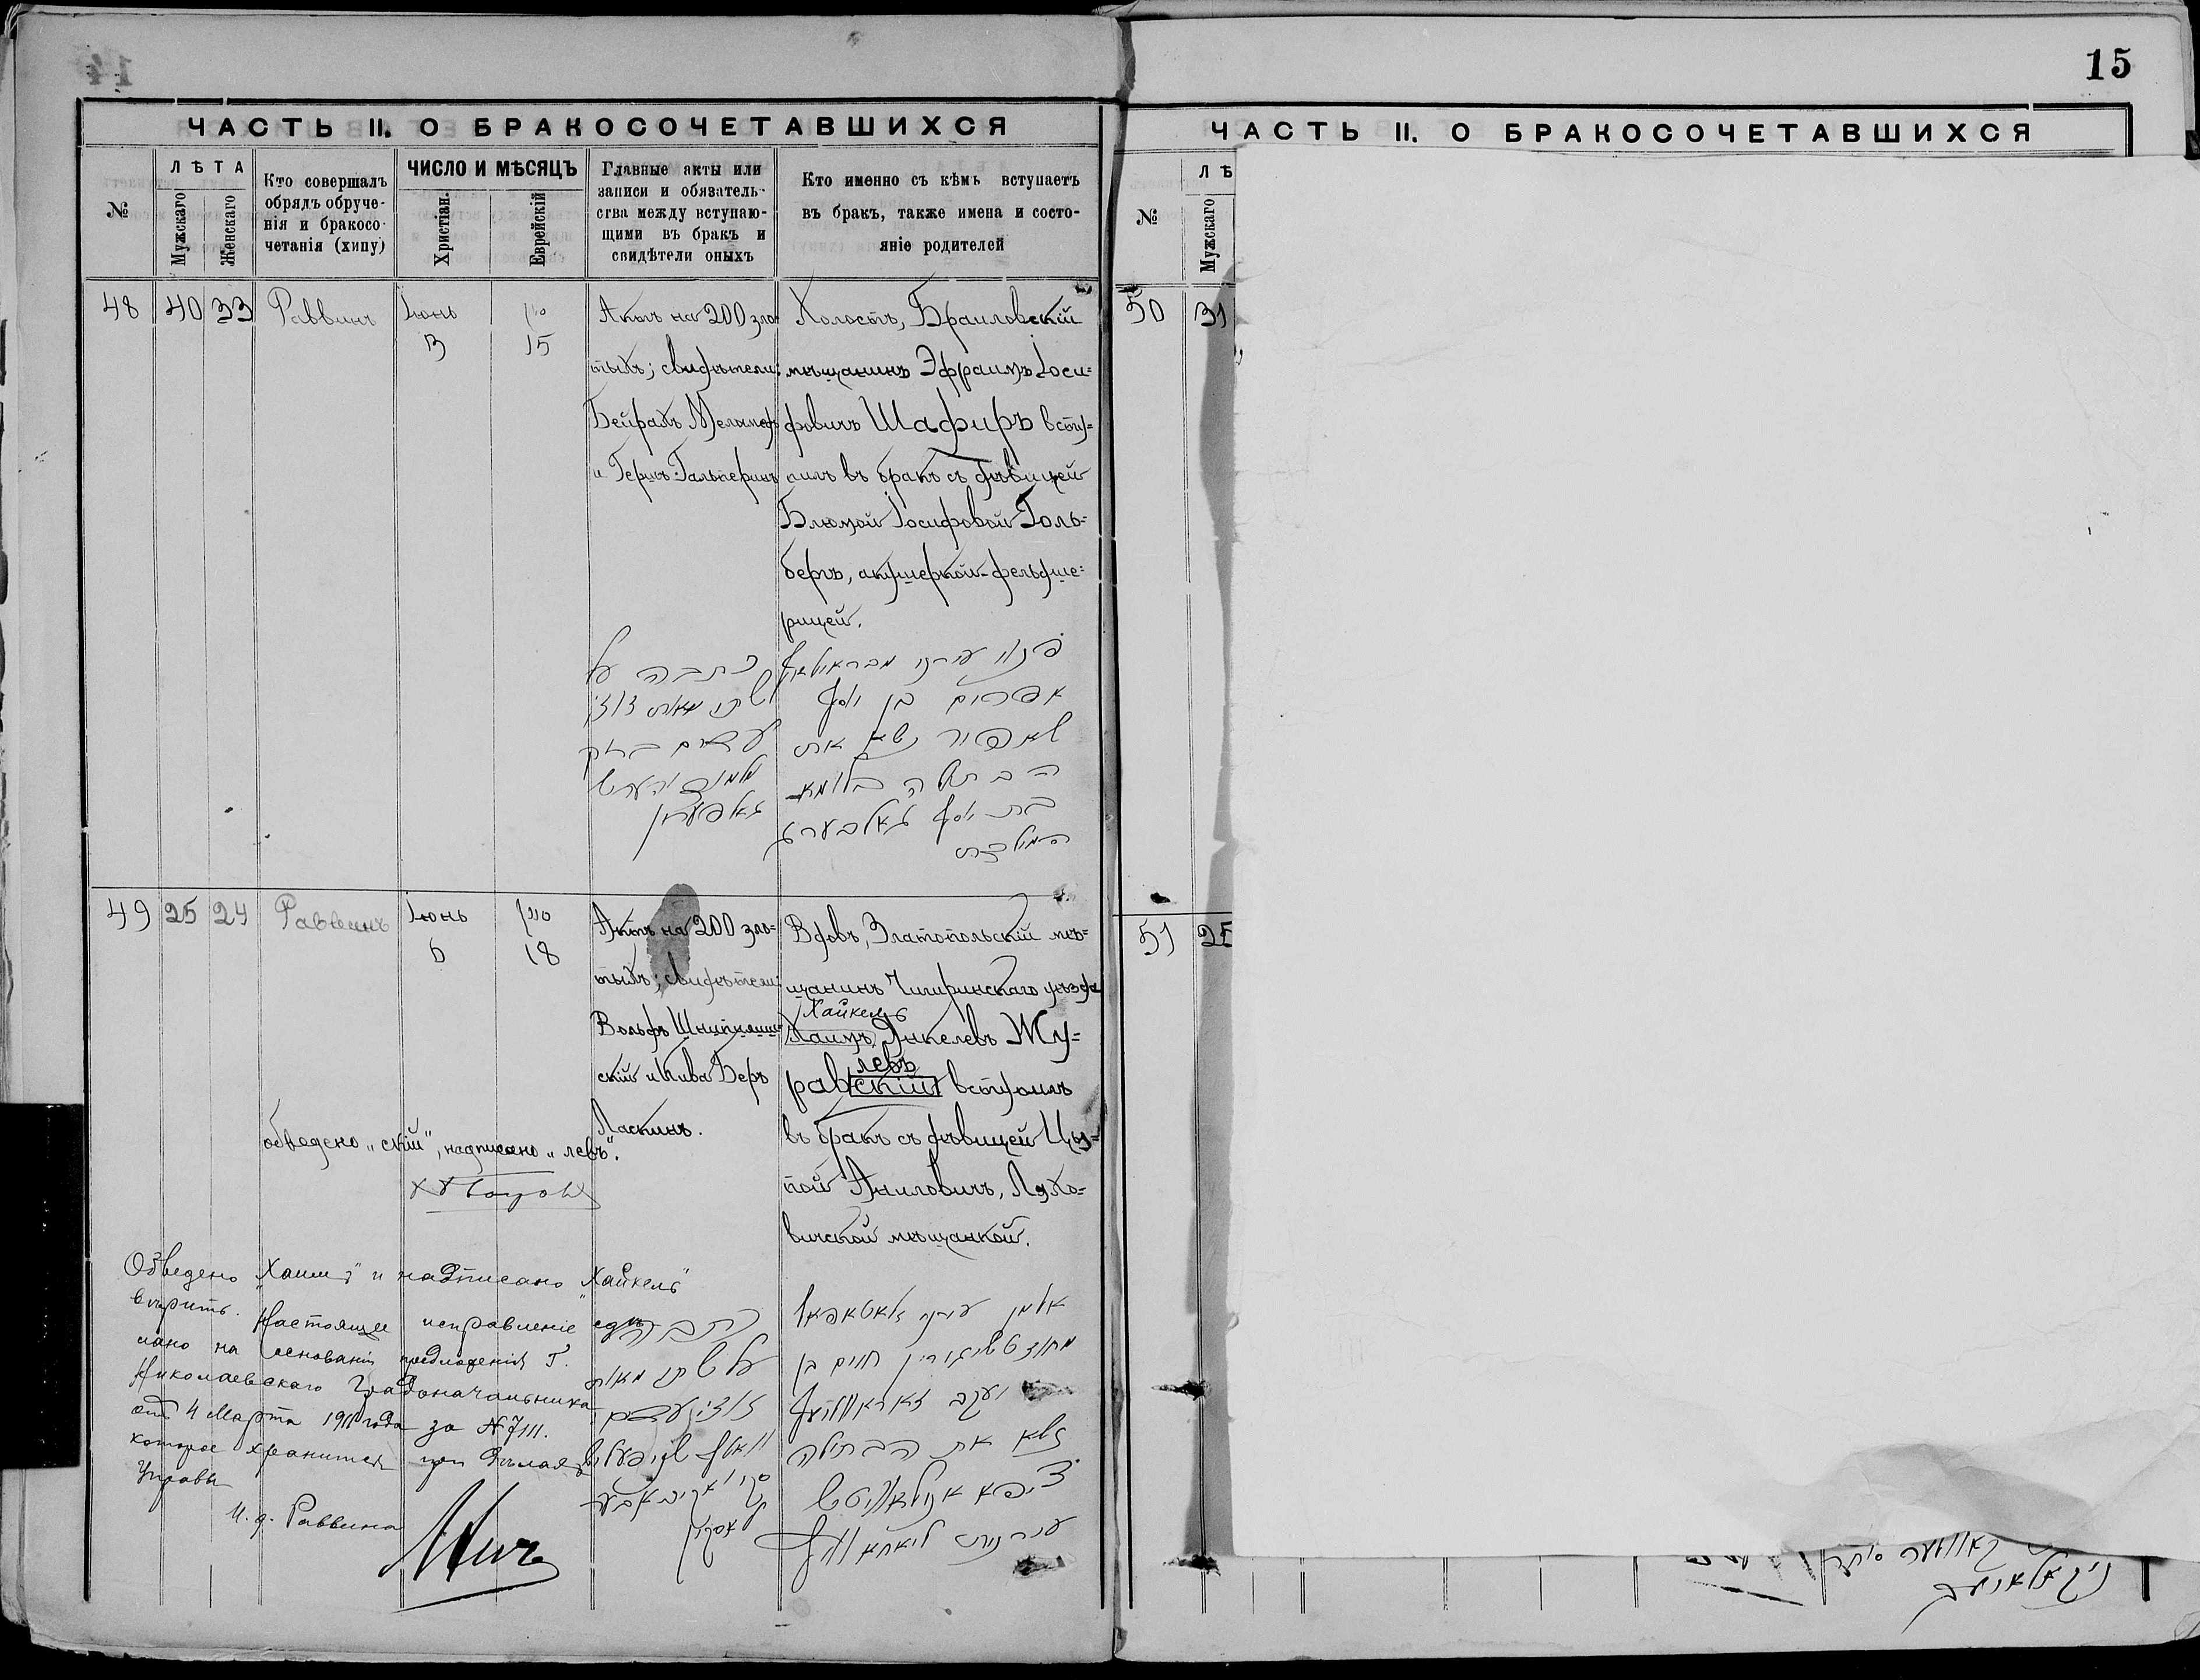 15
ЧАСТЬ II. О БРАКОСОЧЕТАВШИХСЯ
№
ЛѢТА
Мужскаго
Женскаго
Кто совершалъ
обрядъ обруче-
нія и бракосо-
четанія (хипу)
ЧИСЛО И МѢСЯЦЪ
Христіан.
Еврейскій
Главные акты или
записи и обязатель-
ства между вступаю-
щими въ бракъ и
свидѣтели оныхъ
Кто именно съ кѣмъ вступаетъ
въ бракъ, также имена и состо-
яніе родителей
48
40
33
Раввинъ
Іюнь
3
סיון
15
Актъ на 200 зло-
тыхъ; свидѣтели:
Бейрахъ
и Гершъ Гальперинъ
Холостъ, Браиловскій
мѣщанинъ Эфраимъ Іоси=
фовичъ Шафиръ всту=
пилъ въ бракъ съ дѣвицей
Блюмой Іосифовой Голь=
бергъ, акушеркой-фельдше=
рицей.
כתבה על
מאתים זוז
פנוי עירוני
אפרים בן יוסף
שאפיר נשא את
הבתולה בלומא
בת יוסף גאלבערג
המילדת
49
25
24
Раввинъ
Іюнь
6
סיון
18
Актъ на 200 зло=
тыхъ; свидѣтели:
Вольфъ
скій и Акива Беръ
Ласкинъ.
Вдовъ, Златопольскій мѣ=
щанинъ Чигиринскаго уѣзда
Хайкель
Хаимъ Янкелевъ Жу=
левъ
равскій вступилъ
въ бракъ съ дѣвицей Ци=
пой Аниловичъ, Ляхо=
вичской мѣщанкой.
обведено „скій“, надписано „левъ“.
Обведено „Хаимъ“ и надписано „Хайкель“
вѣрить. Настоящее исправленіе сдѣ-
лано на основаніи предложенія Г.
Николаевскаго Градоначальника
отъ 4 Марта 1911 года за №7111.
которое хранится при дѣлахъ
Управы
И. д. Раввина
כתבה
על מאתים
אלמן עירוני
חיים בן
יעקב
נשא את הבתולה
ציפא
ЧАСТЬ II. О БРАКОСОЧЕТАВШИХСЯ
№
ЛѢ
Мужскаго
50
31
51
25